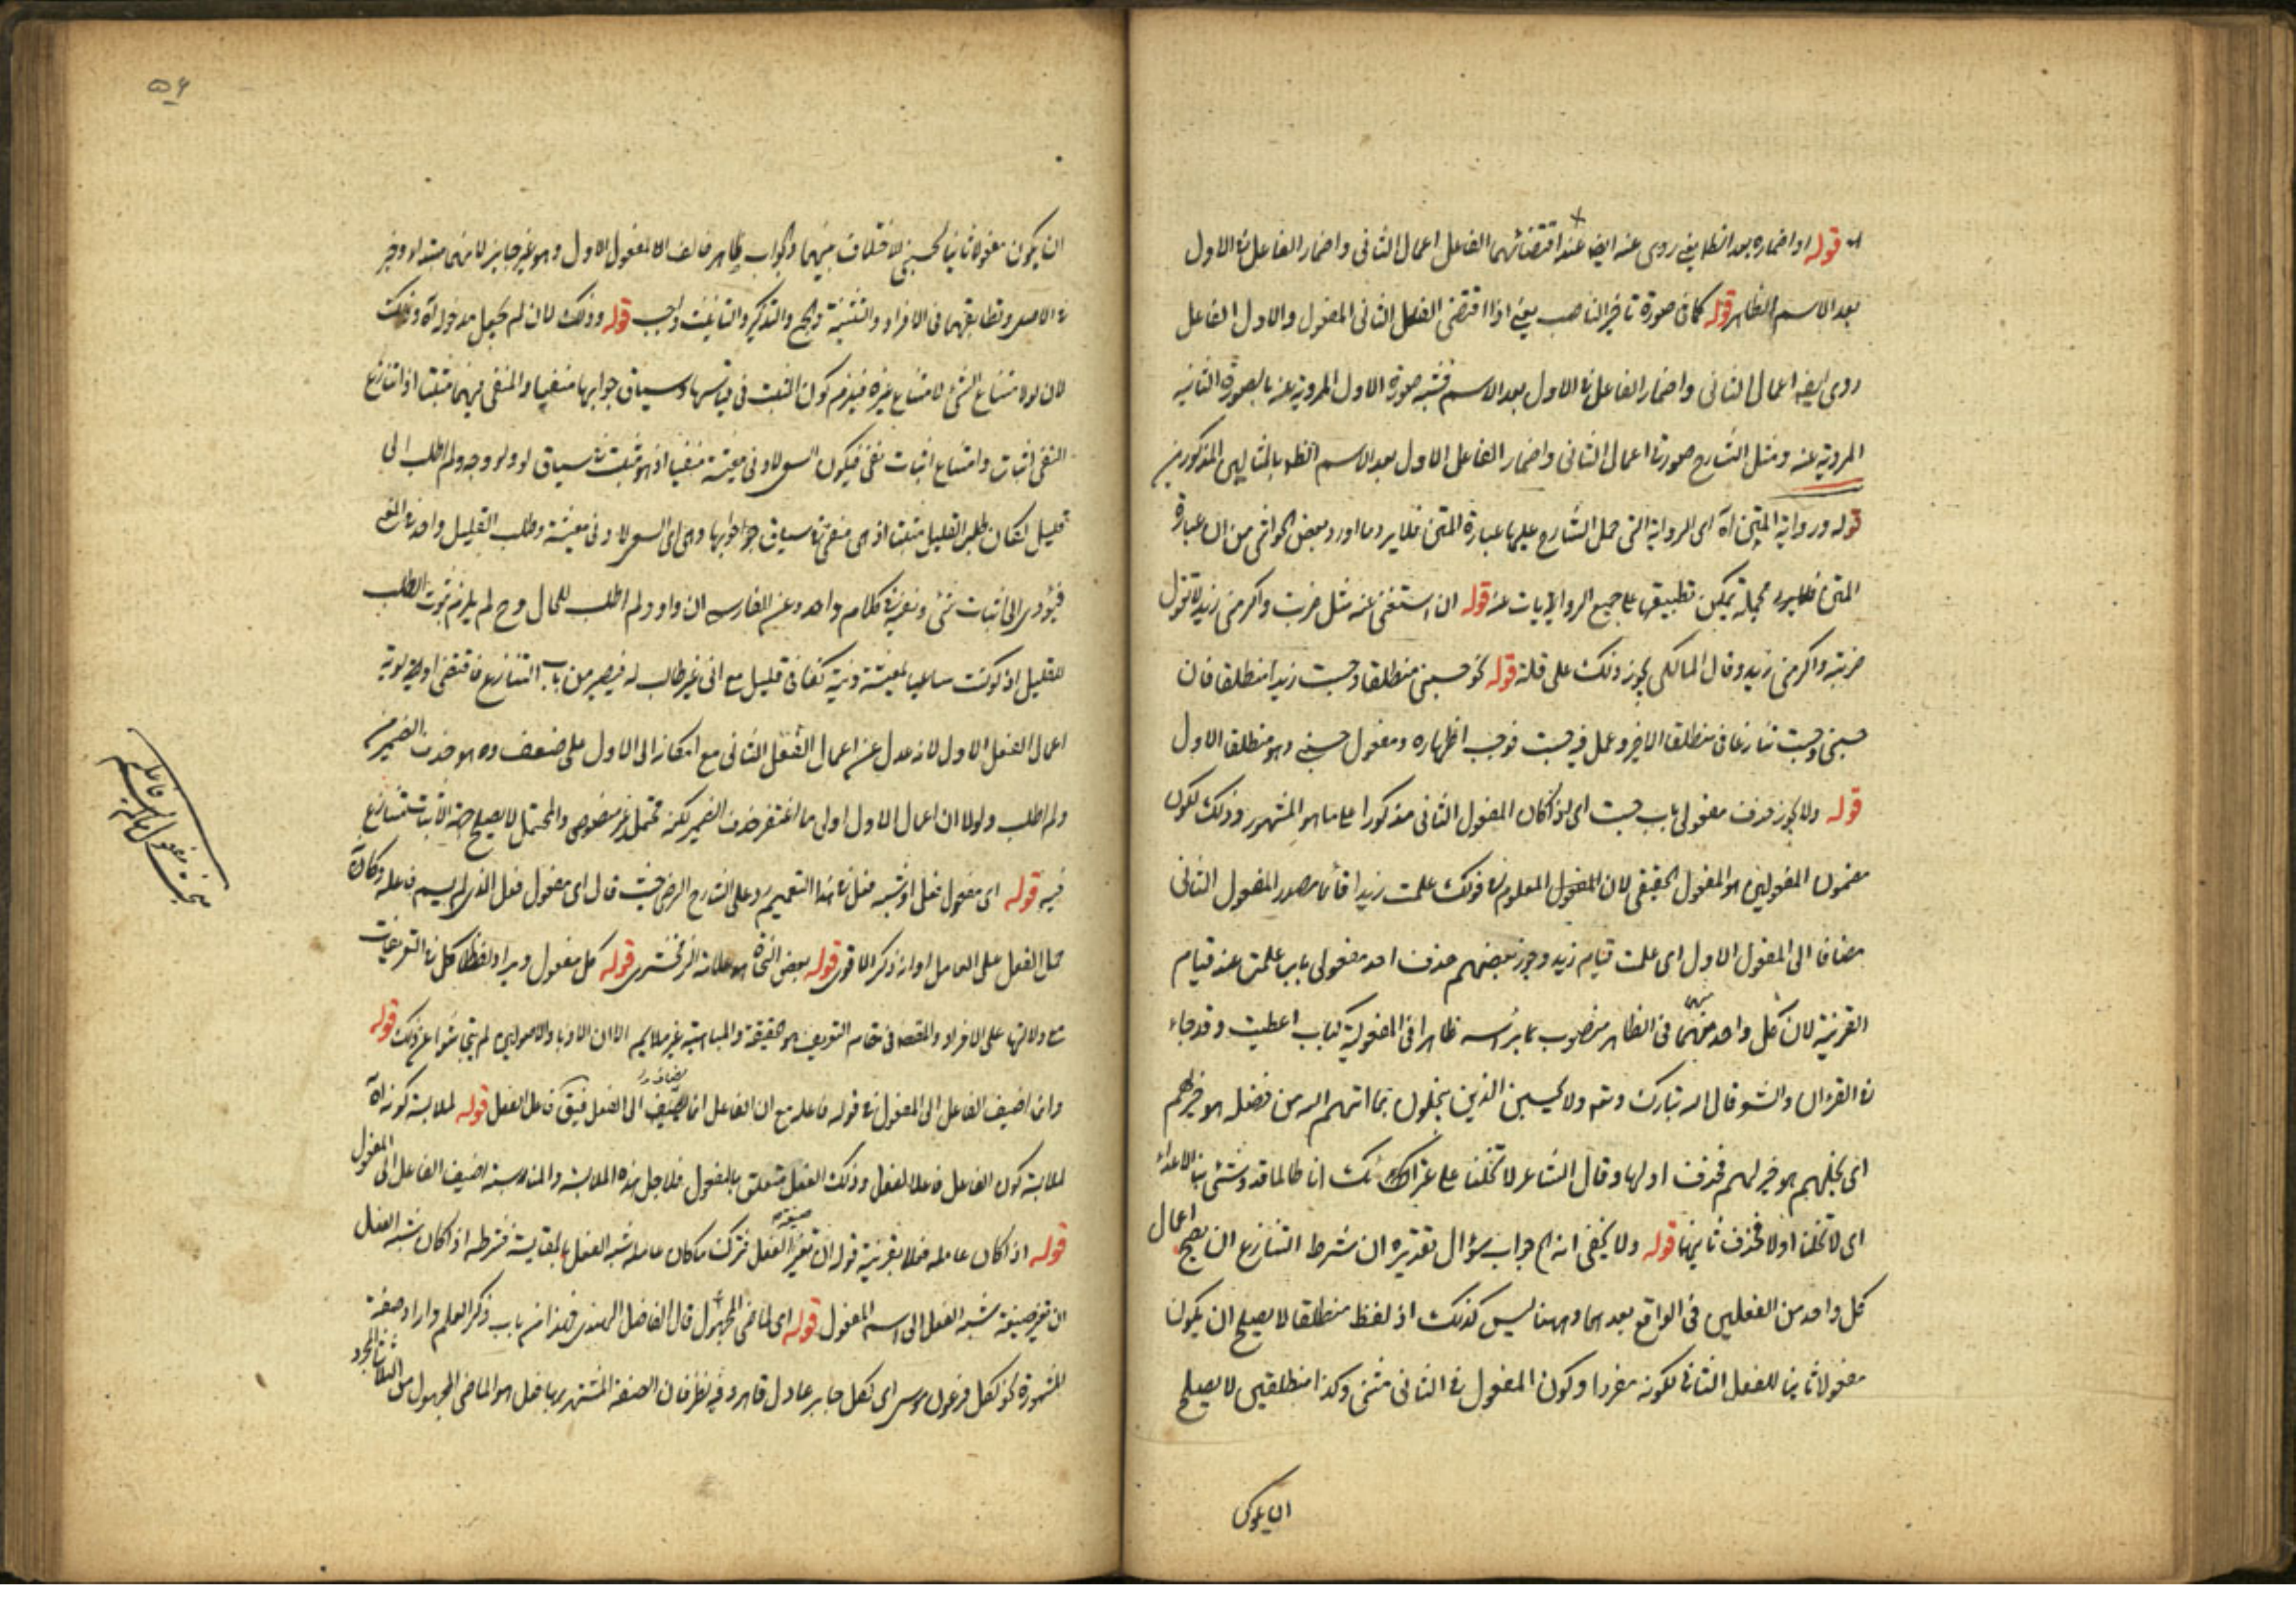 قوله او اضماره بعد الظ يعنى روى عنه ايضا عند اقتضائهما الفاعل اعمال الثانى واضمار الفاعل فى الاول
بعد الاسم الظاهر قوله كما فى صورة تاخير الناصب يعنى اذا اقتضى الفعل الثانى المفعول والاول الفاعل
روى ايضا اعمال الثانى واضمار الفاعل فى الاول بعد الاسم صورة الاول المروية عنه بالصورة الثانية
المروية عنه ومثل الشارح صورتا اعمال الثانى واضمار الفاعل الاول بعد الاسم الظ بالمثالين المذكورين
قوله ورواية المتن اه اى الرواية التى حمل الشارح عليها عبارة المتن فلا يرد ما اورد بعض الحواشى من ان عبارة
المتن مجملة يمكن تطبيقها على جميع الروايات عنه قوله ان استغنى عنه مثل ضربت واكرمنى زيد لا تقول
ضربته واكرمنى زيد وقال المالكى يجوز ذلك على قلة قوله نحو حسبنى منطلقا وحسبت زيدا منطلقا فان
حسبنى وحسبت تنازعا فى منطلقا الاخير وعمل فيه حسبت فوجب اظهاره ومفعول حسبنى وهو منطلقا الاول
قوله ولا يجوز حذف مفعولى باب حسبت اى اذا كان المفعول الثانى مذكورا على ما هو المشهور وذلك لكون
مضمون المفعولين هو المفعول الحقيقى لان المفعول المعلوم فى قولك علمت زيدا قائما مصدر المفعول الثانى
مضافا الى المفعول الاول اى علمت قيام زيد وجوز بعضهم حذف احد مفعولى باب علمت عند قيام
القرينة لان كل واحد منهما فى الظاهر منصوب براسه ظاهرا فى المفعولية كباب اعطيت وقد جاء
فى القران والشعر قال الله تبارك وتعم ولا يحسبن الذين يبخلون بما اتيهم الله من فضله هو خيرا لهم
اى بخلهم هو خيرا لهم فحذف اولها وقال الشاعر لا تخلنا على غرائك انا طالما قد وشى بنا الاعداء
اى لا تخلنا اولا فحذف ثانيهما قوله ولا يخفى انه اه جواب سؤال تقديره ان شرط التنازع ان يصح اعمال
كل واحد من الفعلين فى الواقع بعدهما وههنا ليس كذلك اذ لفظ منطلقا لا يصلح ان يكون
مفعولا ثانيا للفعل الثانى لكونه مفردا وكون المفعول فى الثانى مثنى وكذا منطلقين لا يصلح
ان يكون
۵۶
ان يكون مفعولا ثانيا لحسبنى لاختلاف بينهما والجواب ظاهر المفعول الاول وهو غير جايز لانهما مبتدا وخبر
فى الاصل وتطابقهما فى الافراد والتثنية والجمع والتذكير والتانيث واجب قوله وذلك لان لم يجعل مدخوله اه وذلك
لان لو لامتناع الشئ لامتناع غيره فيلزم كون المثبت فى سياقها وسياق جوابها منفيا والمنفى فيهما مثبتا اذ امتناع
النفى اثبات وامتناع اثبات نفى فيكون السعى لادنى معيشة منفيا اذ هو مثبت فى سياق لو ولو وجد ولم اطلب الى
قليل لكان طلب القليل مثبتا اذ هى منفى فى سياق جوابها وهى اى السعى لادنى معيشة وطلب القليل واحد فى المع
فيؤدى الى اثبات شئ ونفيه فى كلام واحد وعند الفارسى ان واو ولم اطلب للحال وح لم يلزم ثبوت الطلب
للقليل اذ لو كنت ساعيا لمعيشة دنية كفانى قليل مع انى غير طالب له فيصير من باب التنازع فاقتضى اولوية
اعمال الفعل الاول لانه عدل عن اعمال الفعل الثانى مع امكانه الى الاول على ضعف وهو حذف الضمير من
ولم اطلب ولولا ان اعمال الاول اولى ما اغتفر حذف الضمير لكنه محتمل غير منصوص والمحتمل لا يصلح حجة لاثبات تنازع
فيه قوله اى مفعول فعل او شبه فعل فى هذا التعميم رد على الشارح الرضى حيث قال اى مفعول فعل الذى لم يسم فاعله وكانه
حمل الفعل على العامل او انه ذكر الاقوى قوله بعض النحاة هو علامة الزمخشرى قوله كل مفعول ويراد لفظ كل فى التعريفات
مع دلالتها على الافراد والمقصد فى مقام التعريف هو الحقيقة والماهية غير ملايم الا ان الادبا والاصوليين لم يتحاشوا عن ذلك قوله
وانما اضيف الفاعل الى المفعول فى قوله فاعله مع ان الفاعل انما يضاف الى الفعل فيق فاعل الفعل قوله لملابسة كونه اه
لملابسة كون الفاعل فاعلا لفعل وذلك الفعل متعلق بالمفعول فلاجل هذه الملابسة والمناسبة اضيف الفاعل الى المفعول
قوله اذا كان عامله فعلا بقرينة قوله ان تغير صيغة الفعل فترك ما كان عامله شبه الفعل بالمقايسة فشرطه اذا كان شبه الفعل
ان تغير صيغة شبه الفعل الى اسم المفعول قوله اى الماضى المجهول قال الفاضل الهندى هذا من باب ذكر العلم واراد صفته
المشهورة نحو لكل فرعون موسى اى لكل جابر عادل قاهر وفيه نظر فان الصفة المشتهر بها فعل هو الماضى المجهول من الثلاثى المجرد
بحث مفعول ما لم يسم فاعله